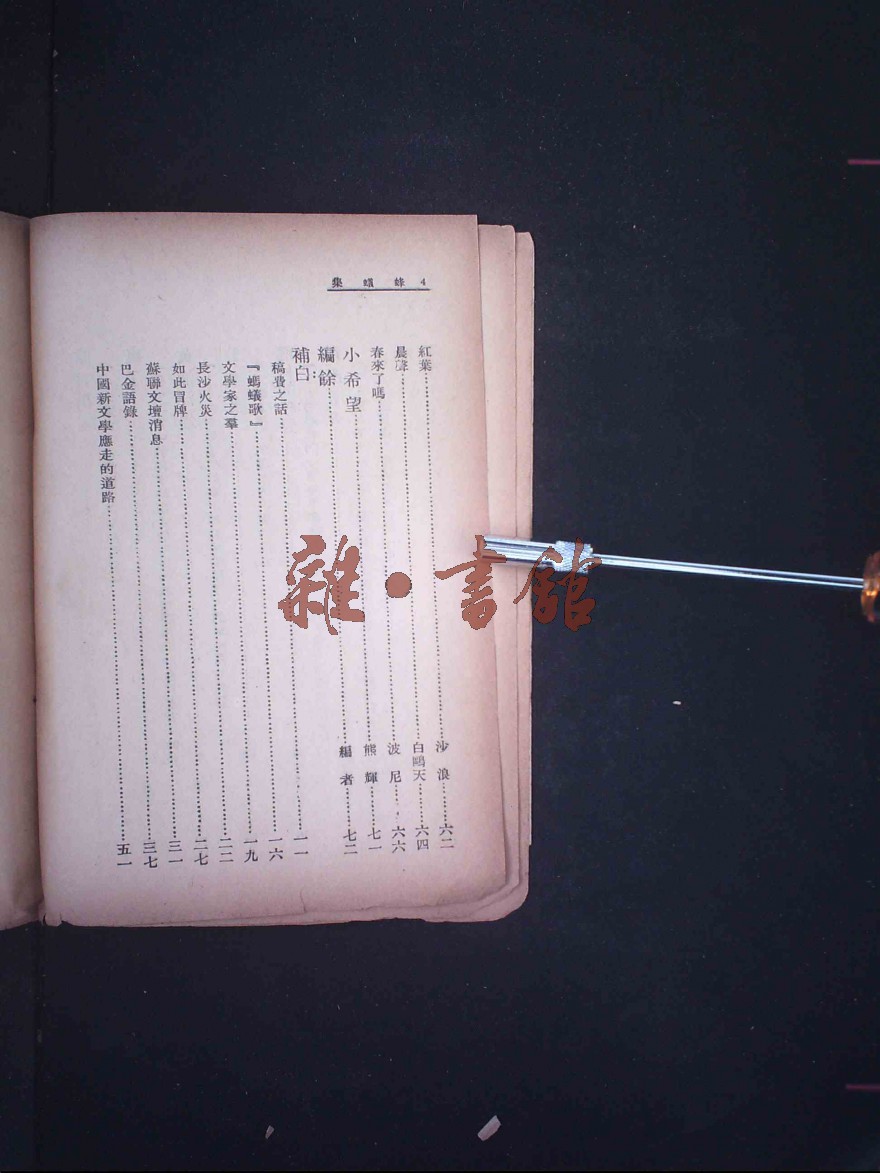 4 蜂蟻集
紅葉……沙浪……六二
晨聲……白鷗天……六四
春來了嗎……波尼……六六
小希望……熊輝……七一
編餘……編者……七二
補白：
稿費之話……一一
『螞蟻歌』……一六
文學家之羣……一九
長沙火災……二二
如此冒牌……二七
蘇聯文壇消息……三一
巴金語錄……三七
中國新文學應走的道路……五一
雜•書館